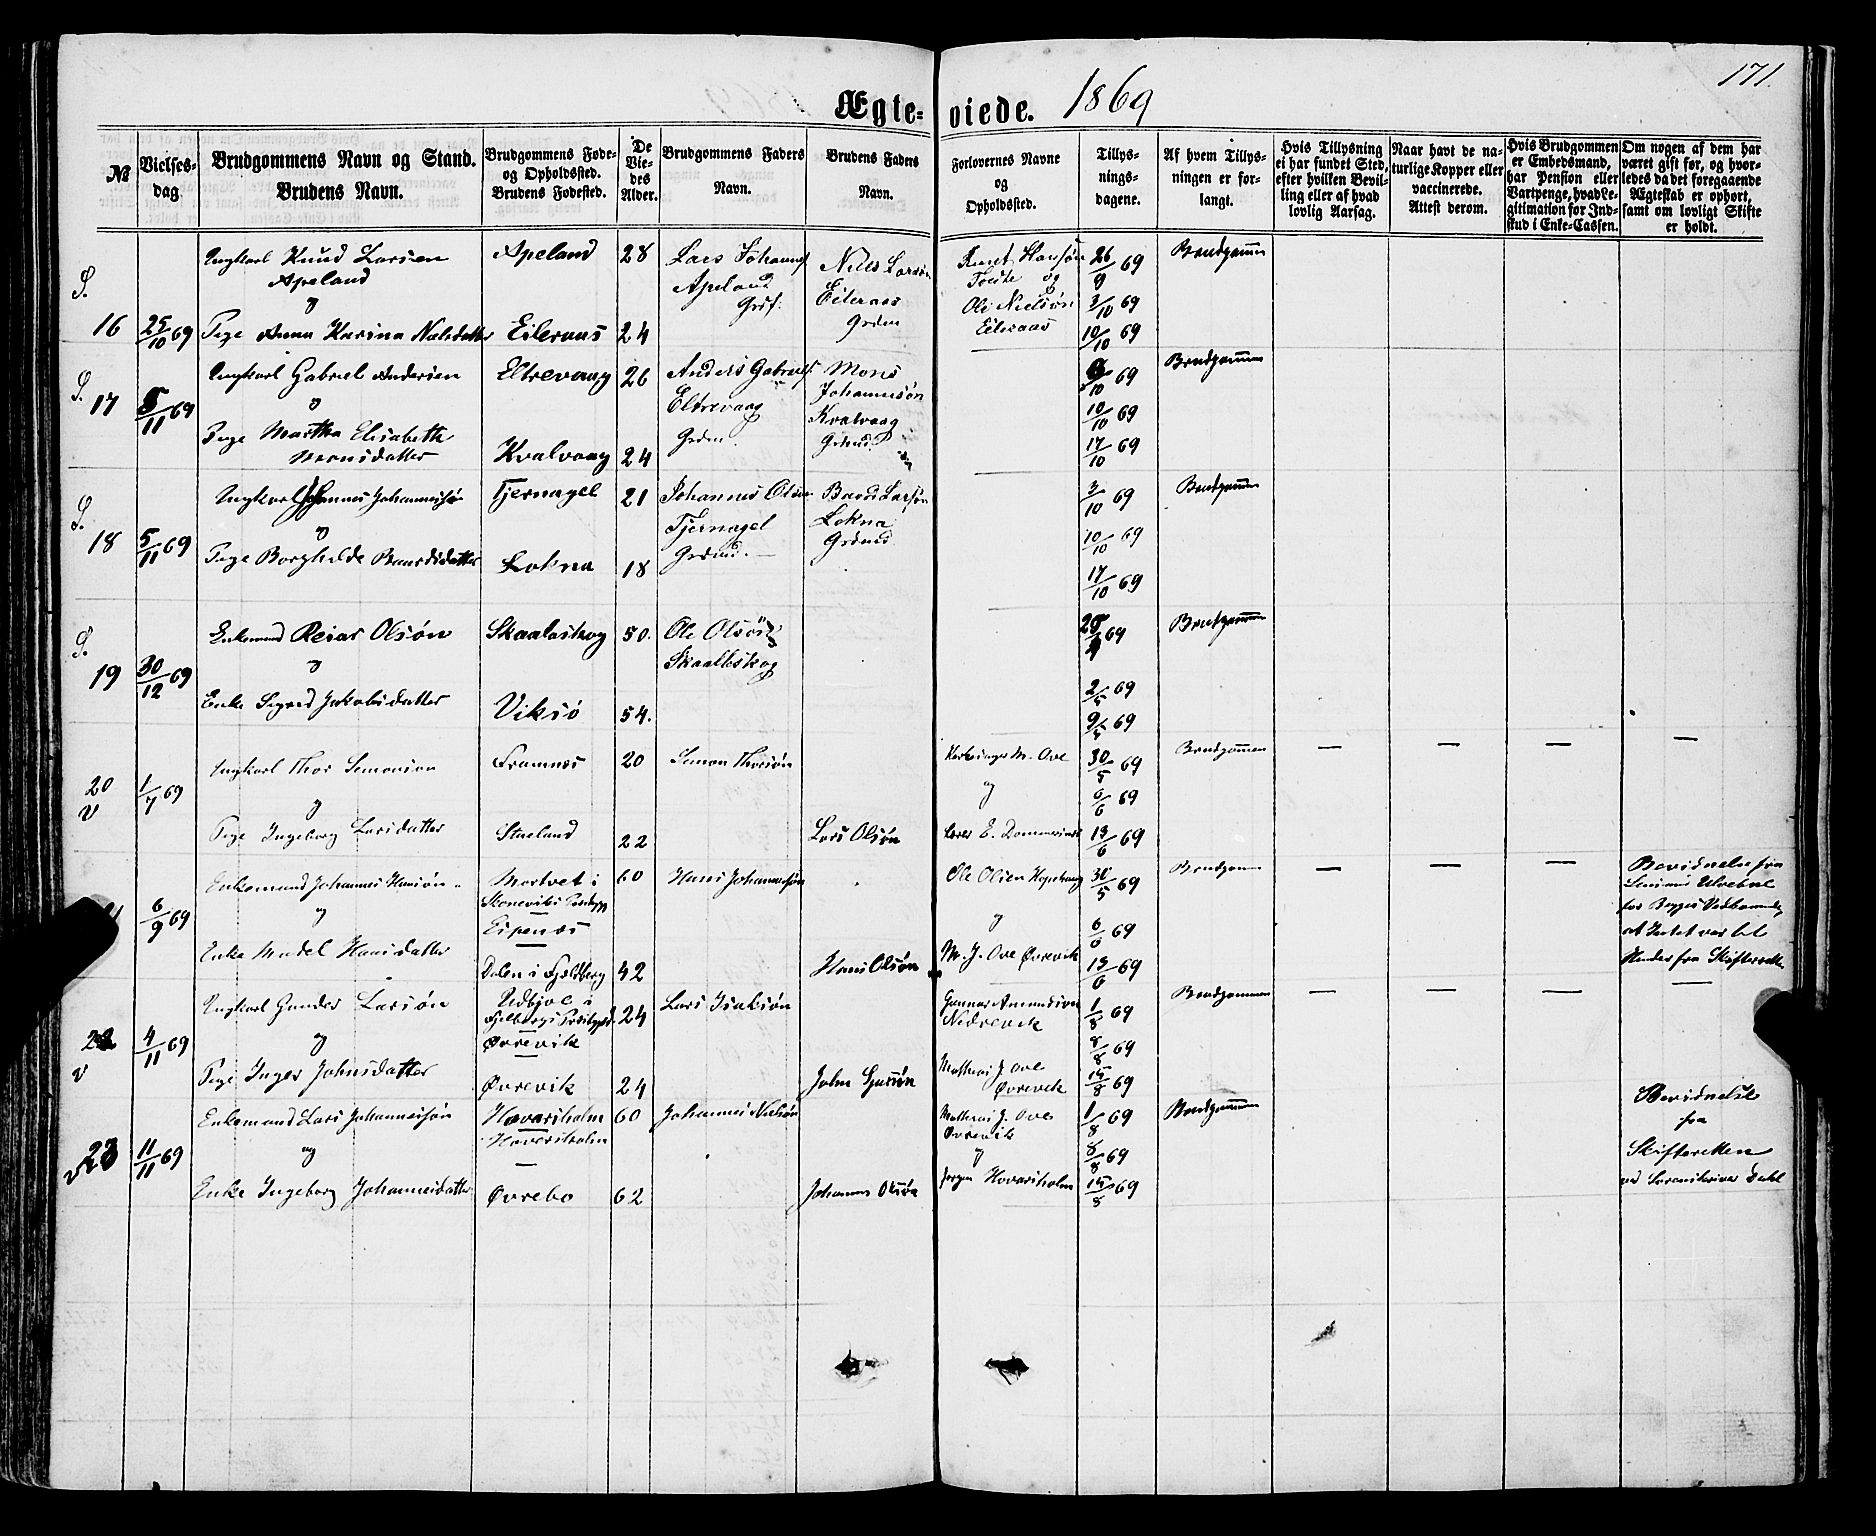 171.
Ægteviede. 1869
№
Vielsesdag
Brudgommens Navn og Stand.
Brudens Navn.
Brudgommens Føde-
og Opholdssted.
Brudens Fødested.
De
Vie-
des
Alder.
Brudgommens Faders
Navn.
Brudens Faders
Navn.
Forlovernes Navne
og
Opholdssted.
Tillys-
nings-
dagene.
Af hvem Tillys-
ningen er for-
langt.
Hvis Tillysning
ei har fundet Sted,
efter hvilken Bevil-
ling eller af hvad
lovlig Aarsag.
Naar havt de na-
turlige Kopper eller
vaccinerede.
Attest derom.
Hvis Brudgommen
er Embedsmand,
har Pension eller
Vartpenge, hvad Le-
gitimation for Ind-
skud i Enke-Cassen.
Om nogen af dem har
været gift før, og hvor-
ledes da det foregaaende
Ægteskab er ophørt,
samt om lovligt Skifte
er holdt.
S.
16 25/10 69
Ungkarl Knud Larsen
Apeland
og
Pige Anna Karina Nielsdatter
Apeland
Eileraas
28
24
Lars Johannes
Apeland
Grdf.
Niels Larsøn
Eileraas
Grdm
Knut Hansøn
Tveite og
Ole Nielsøn
Eileraas
26/9 69
3/10 69
10/10 69
Brudgommen
S.
17 5/11 69
Ungkarl Gabriel Andersen
og
Pige Martha Elisabeth
Monsdatter
Eltrevaag
Kvalvaag
26
24
Anders Gabriels
Eltrevaag
Grdm.
Mons
Johannesøn
Kvalvaag
Grdmd.
3/10 69
10/10 69
17/10 69
Brudgommen
S.
18 5/11 69
Ungkarl Johannes Johannessøn
og
Pige Borghilde Baardsdatter
Tjernagel
Lokna
21
18
Johannes Olsøn
Tjernagel
Grdmd.
Baard Larsøn
Lokna
Grdmd
3/10 69
10/10 69
17/10 69
Brudgommen
S.
19 30/12 69
Enkemand Reiar Olsøn
og
Enke Sigrid Jakobsdatter
Skaaleskog
Viksø
50.
54.
Ole Olsøn
Skaaleskog
25/4 69
2/5 69
9/5 69
Brudgommen
20
V
1/7 69
Ungkarl Thor Simonson
og
Pige Ingeborg Larsdatter
Framnes
Staeland
20
22
Simon Thorsøn
Lars Olsøn
Kirkesanger M. Ove
og
Lærer E.
30/5 69
6/6 69
13/6 69
Brudgommen
— — — —
6/9 69
Enkemand Johannes Hansøn
og
Enke Madel Hansdatter
Mortvet i
Skoneviks Prstgj
Espenæs
Dalen i Fjeldberg
60
42
Hans Johannessøn
Hans Olsøn
Ole Olsen
og
M. J. Ove Øvrevik
30/5 69
6/6 69
13/6 69
Brudgommen
— — —
Bevidnelse fra
for Begges Vedkommende,
at Intet var til
Hinder fra Skifteretten
22
V
4/11 69
Ungkarl Gunder Larsøn
og
Pige Inger Johnsdatter
Udbjoe i
Fjelbergs Præstegjeld
Øvrevik
Øvrevik
24
24
Lars Isaksøn
John
Gunnar Amundsøn
Nedrevik
Mathias J. Ove
Øvrevik
1/8 69
8/8 69
15/8 69
Brudgommen
— — — —
V
23 11/11 69
Enkemand Lars Johannessøn
og
Enke Ingeborg Johannesdatter
Hovarsholm
Hovarsholm
Øvrebo
60
62
Johannes Nielsøn
Johannes Olsøn
Mathias J. Ove
Øvrevik
og
Jørgen Hovarsholm
1/8 69
8/8 69
15/8 69
Brudgommen
Bevidnelse
fra
Skifteretten
ved Sorenskriver Dahl